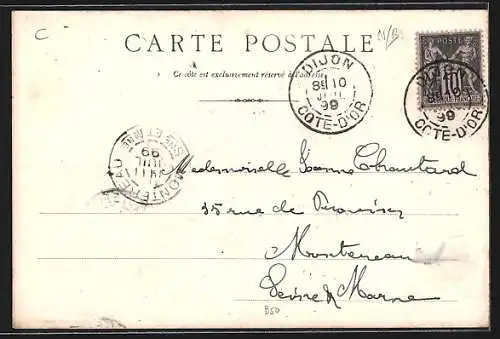 C
N/B
CARTE POSTALE
Ce côté est exclusivement réservé à l'adresse
DIJON
10
JUIL
99
COTE-D'OR
POSTE
10
99
COTE-D'OR
MONTEREAU
JUIL
99
SNE ET MNE
Mademoiselle Jeanne Chautard
35 rue de
Montereau
Seine & Marne
B50